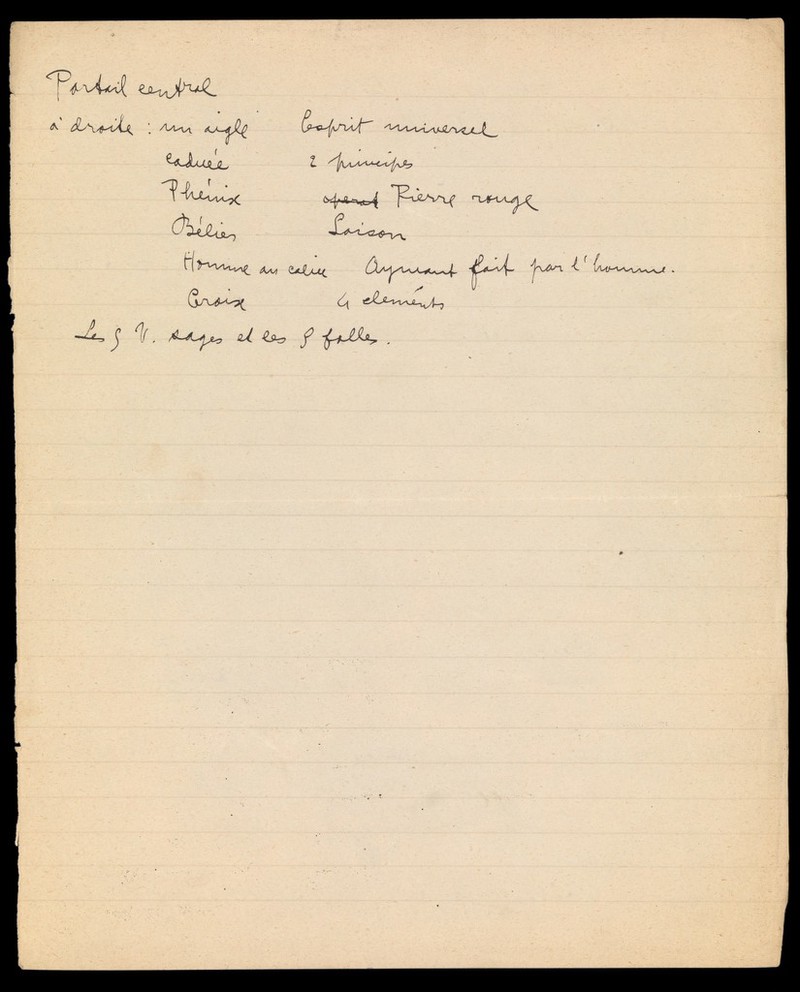 Portail central
à droite : un aigle l'esprit universel
caducée 2 principes
Phénix Pierre rouge
Bélier Saison
Homme au calice Aymant fait par l'homme.
Croix 4 elements
Les 5 V. sages et les 5 folles.